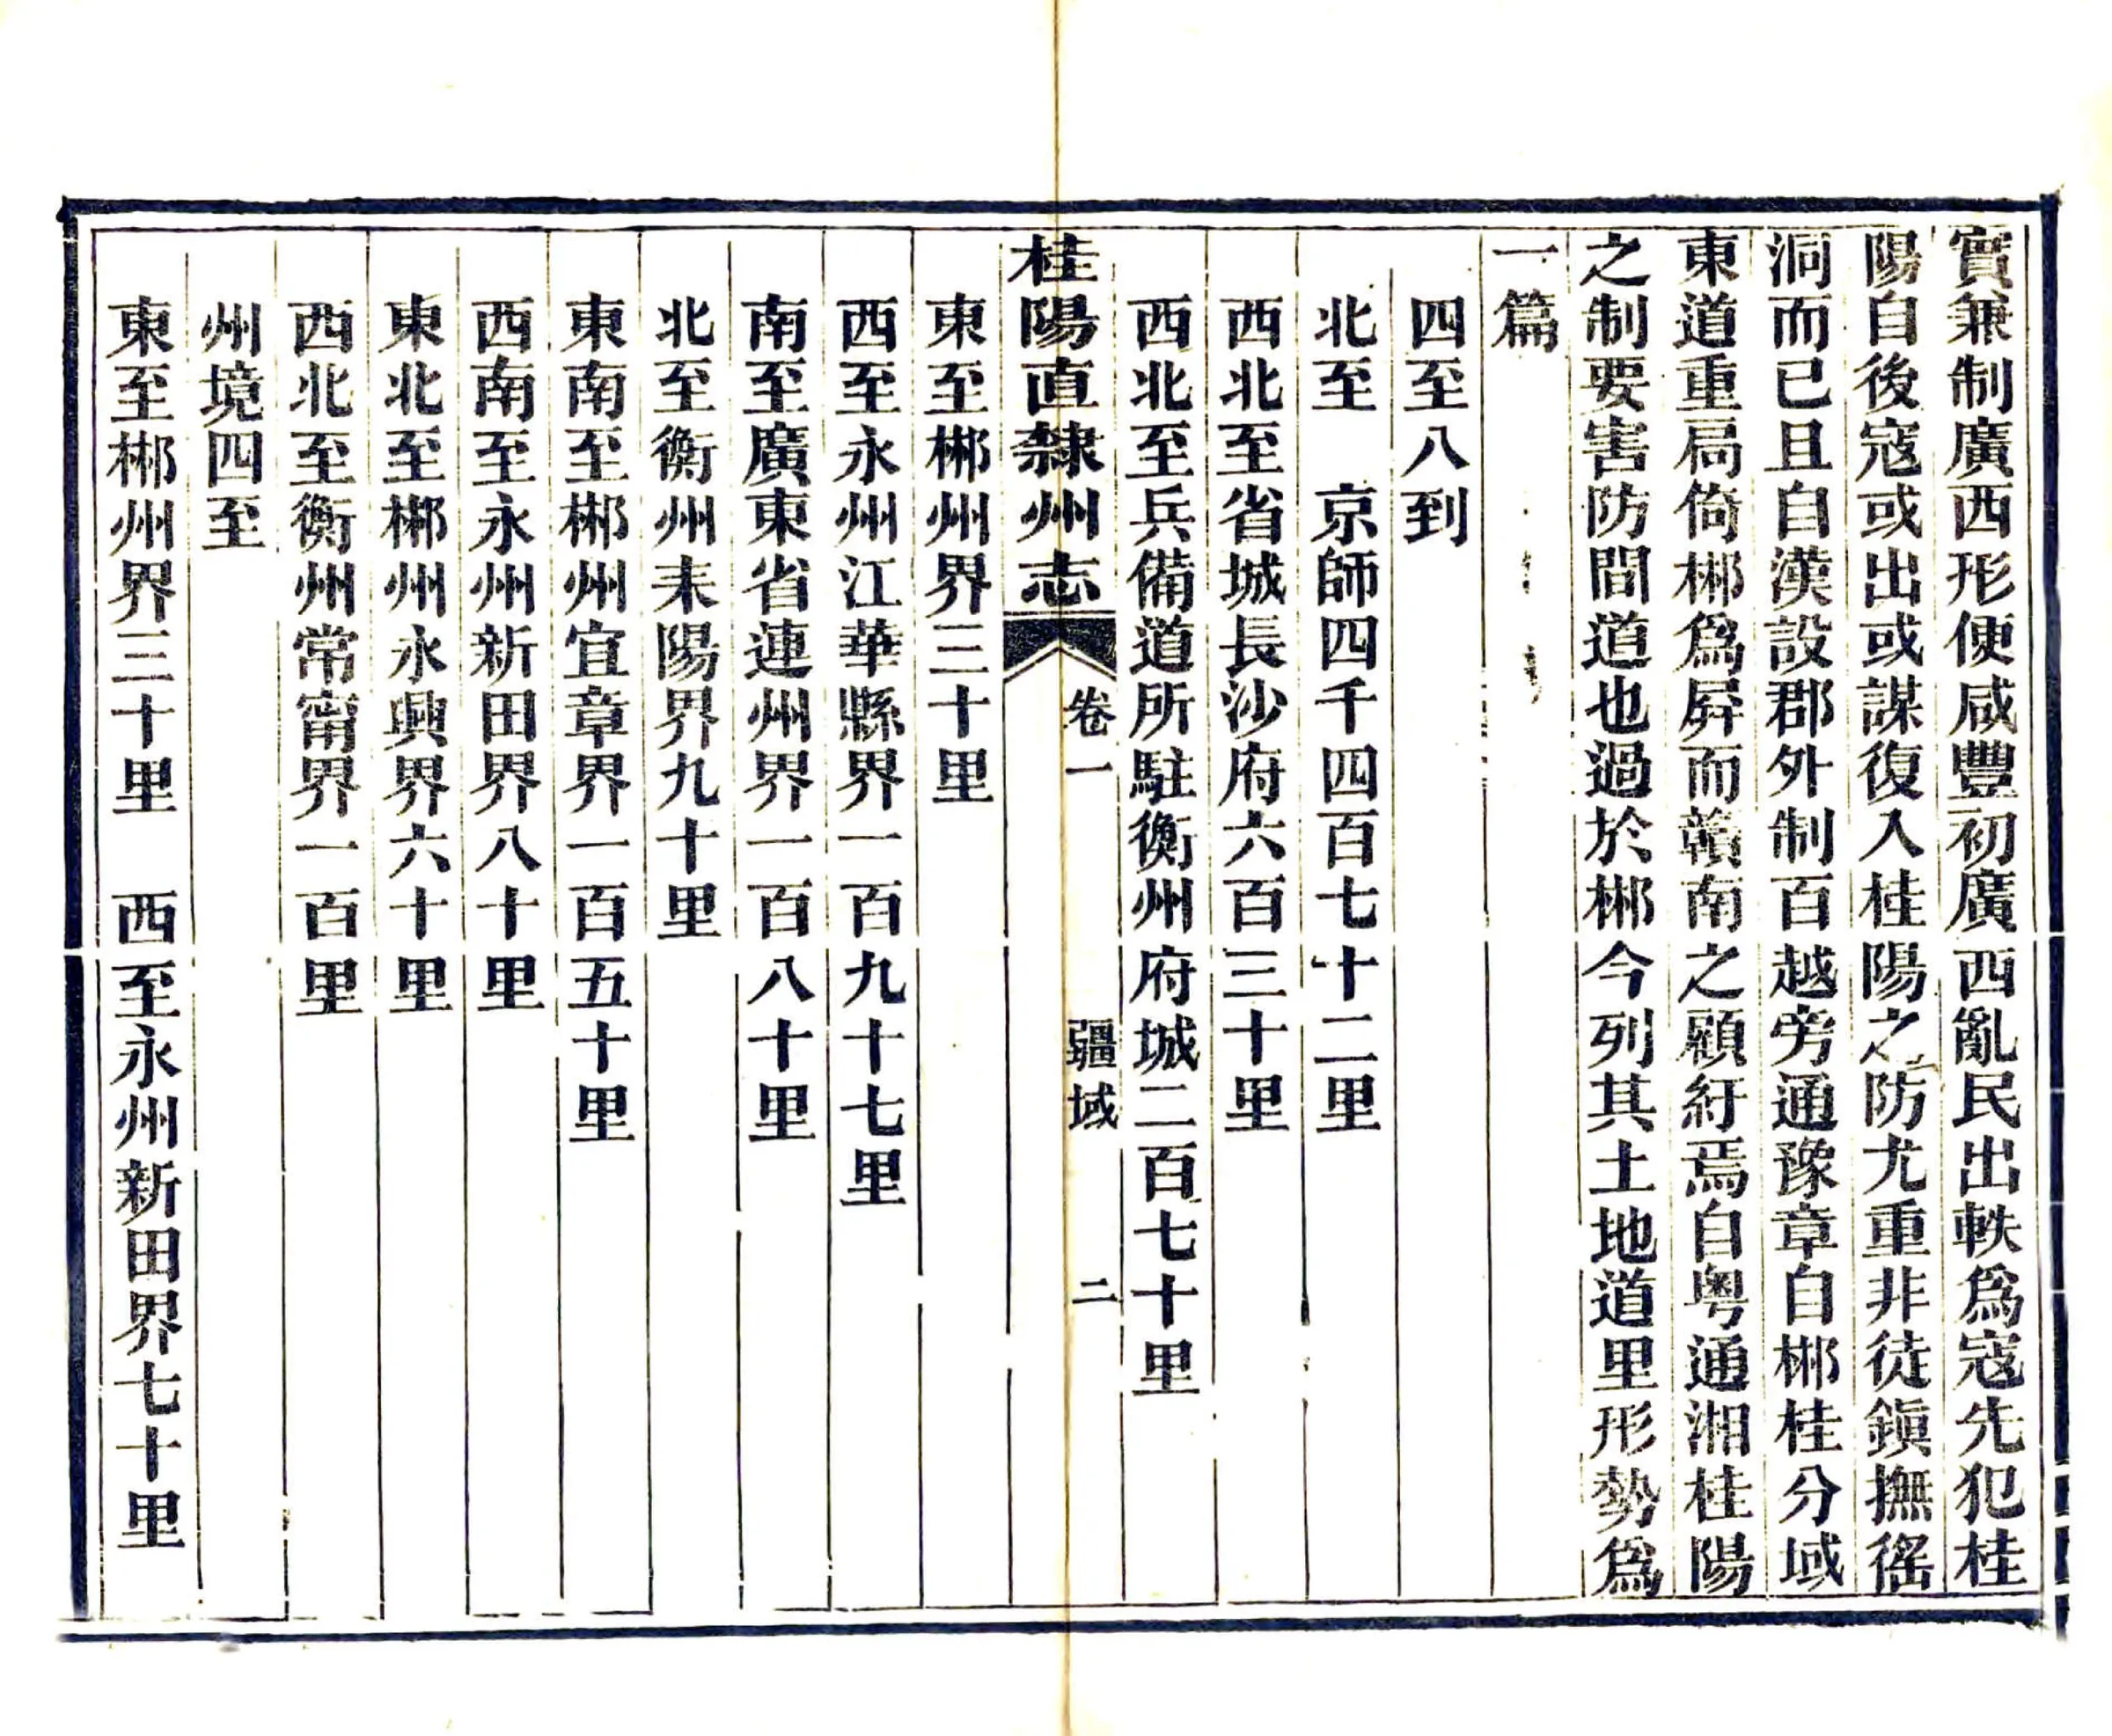 實兼制廣西形便咸豐初廣西亂民出軼爲寇先犯桂
陽自後寇或出或謀復入桂陽之防尤重非徒鎭撫徭
洞而已且自漢設郡外制百越旁通豫章自郴桂分域
東道重局倚郴爲屛而贛南之顧紆焉自粤通湘桂陽
之制要害防間道也過於郴今列其土地道里形勢爲
一篇
四至八到
北至　京師四千四百七十二里
西北至省城長沙府六百三十里
西北至兵備道所駐衡州府城二百七十里
桂陽直隸州志　卷一　疆域　二
東至郴州界三十里
西至永州江華縣界一百九十七里
南至廣東省連州界一百八十里
北至衡州耒陽界九十里
東南至郴州宜章界一百五十里
西南至永州新田界八十里
東北至郴州永興界六十里
西北至衡州常甯界一百里
州境四至
東至郴州界三十里　西至永州新田界七十里